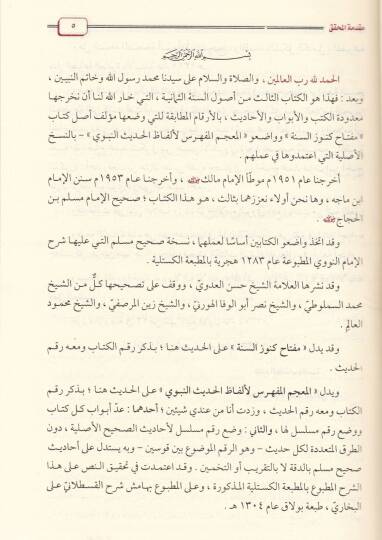 مقدمة المحقق
٥
بسم الله الرحمن الرحيم
الحمد لله رب العالمين ، والصلاة والسلام على سيدنا محمد رسول الله وخاتم النبيين ،
وبعد : فهذا هو الكتاب الثالث من أصول السنة الثمانية ، التي خار الله لنا أن نخرجها
معدودة الكتب والأبواب والأحاديث ، بالأرقام المطابقة للتي وضعها مؤلف أصل كتاب
« مفتاح كنوز السنة » وواضعو « المعجم المفهرس لألفاظ الحديث النبوي » – بالنسخ
الأصلية التي اعتمدوها في عملهم .
أخرجنا عام ١٩٥١ م موطّأ الإمام مالك ، وأخرجنا عام ١٩٥٣ م سنن الإمام
ابن ماجه ، وها نحن أولاء نعززهما بثالث ، هو هذا الكتاب ؛ صحيح الإمام مسلم بن
الحجاج .
وقد اتخذ واضعو الكتابين أساسًا لعملهما ، نسخة صحيح مسلم التي عليها شرح
الإمام النووي المطبوعة عام ١٢٨٣ هجرية بالمطبعة الكستلية .
وقد نشرها العلامة الشيخ حسن العدوي ، ووقف على تصحيحها كلٌّ من الشيخ
محمد السملوطي ، والشيخ نصر أبو الوفا الهوريني ، والشيخ زين المرصفي ، والشيخ محمود
العالم .
وقد يدل « مفتاح كنوز السنة » على الحديث هنا ؛ بذكر رقم الكتاب ومعه رقم
الحديث .
ويدل « المعجم المفهرس لألفاظ الحديث النبوي » على الحديث هنا ؛ بذكر رقم
الكتاب ومعه رقم الحديث ، وزدت أنا من عندي شيئين ؛ أحدهما : عدّ أبواب كل كتاب
ووضع رقم مسلسل لها ، والثاني : وضع رقم مسلسل لأحاديث الصحيح الأصلية ، دون
الطرق المتعددة لكل حديث – وهو الرقم الموضوع بين قوسين – وبه يستدل على أحاديث
صحيح مسلم بالدقة لا بالتقريب أو التخمين . وقد اعتمدت في تحقيق النص على هذا
الشرح المطبوع بالمطبعة الكستلية المذكورة ، وعلى المطبوع بهامش شرح القسطلانيّ على
البخاريّ ، طبعة بولاق عام ١٣٠٤ هـ .